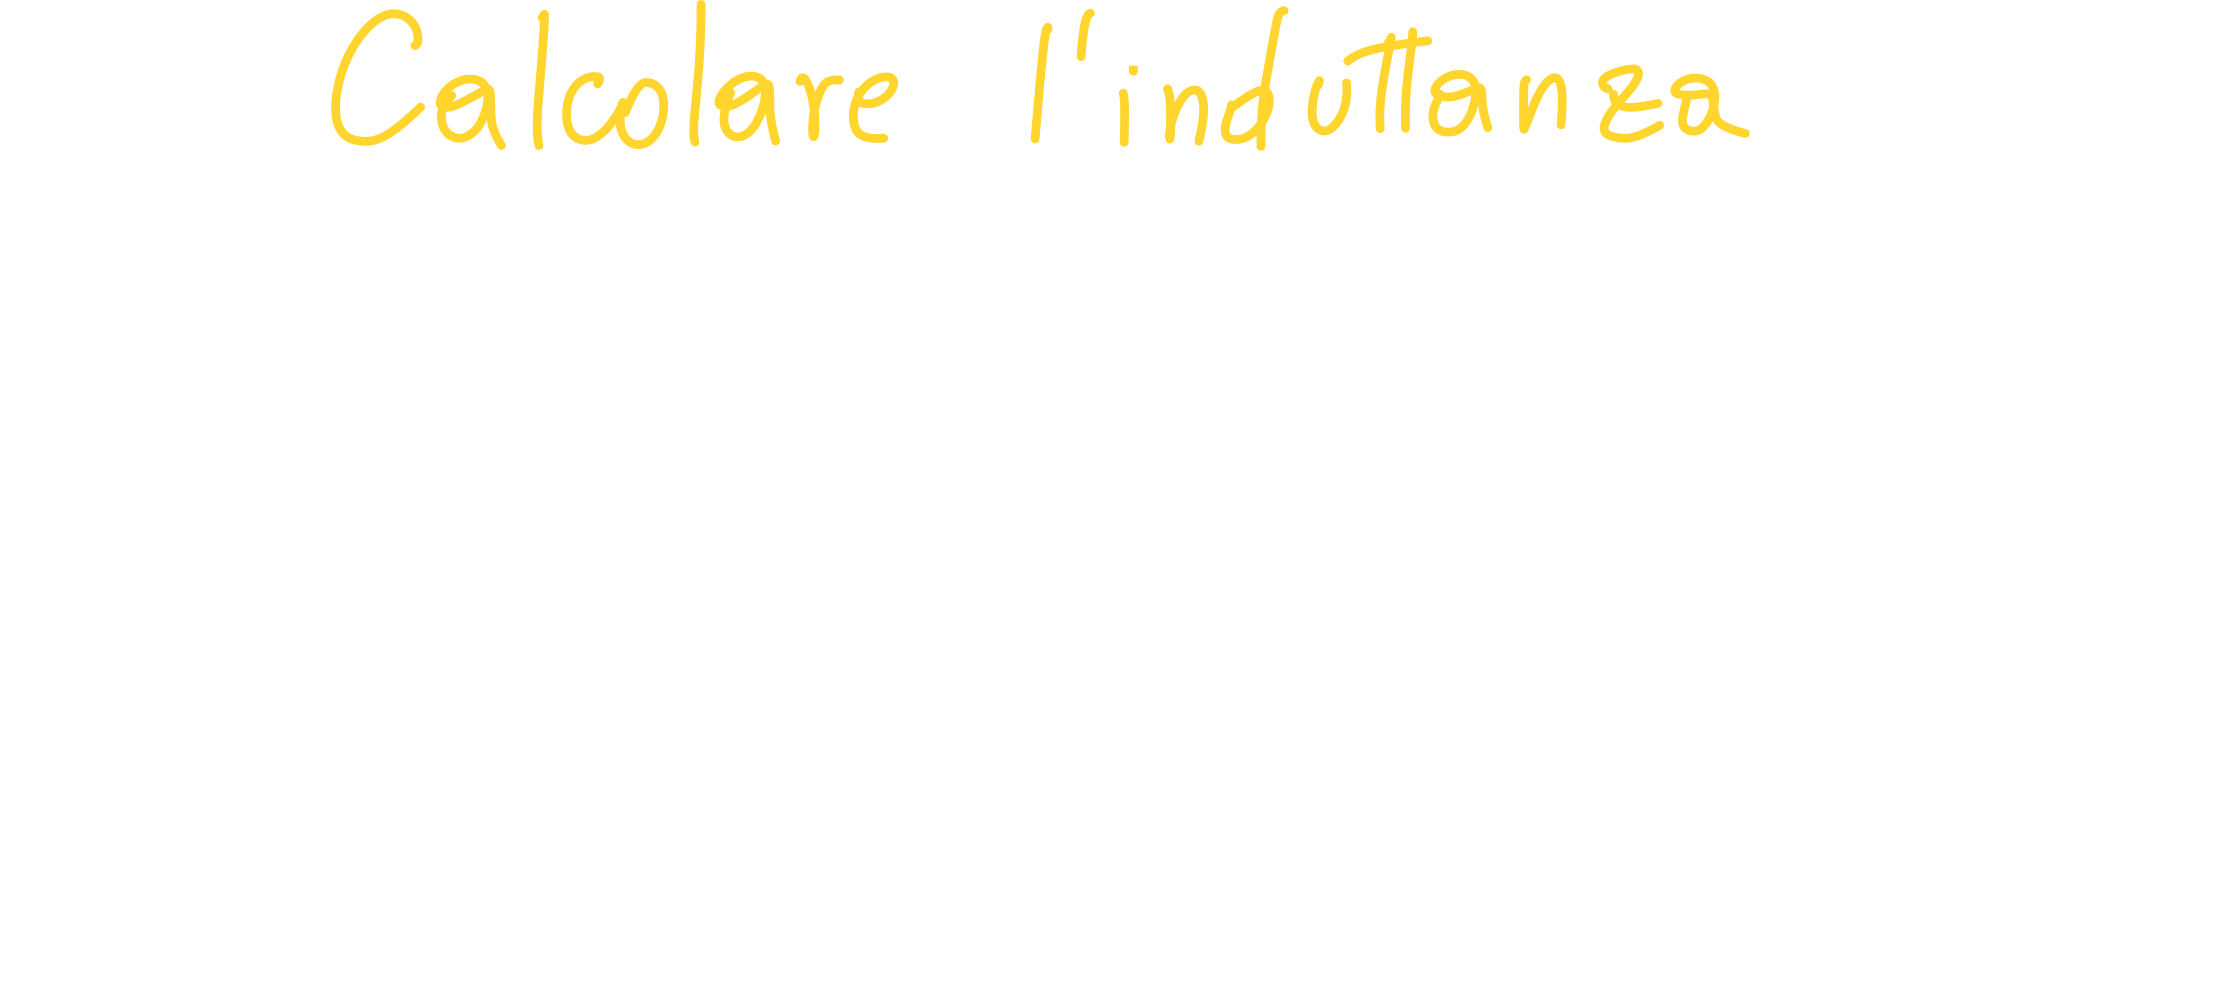 Calcolare l'induttanza